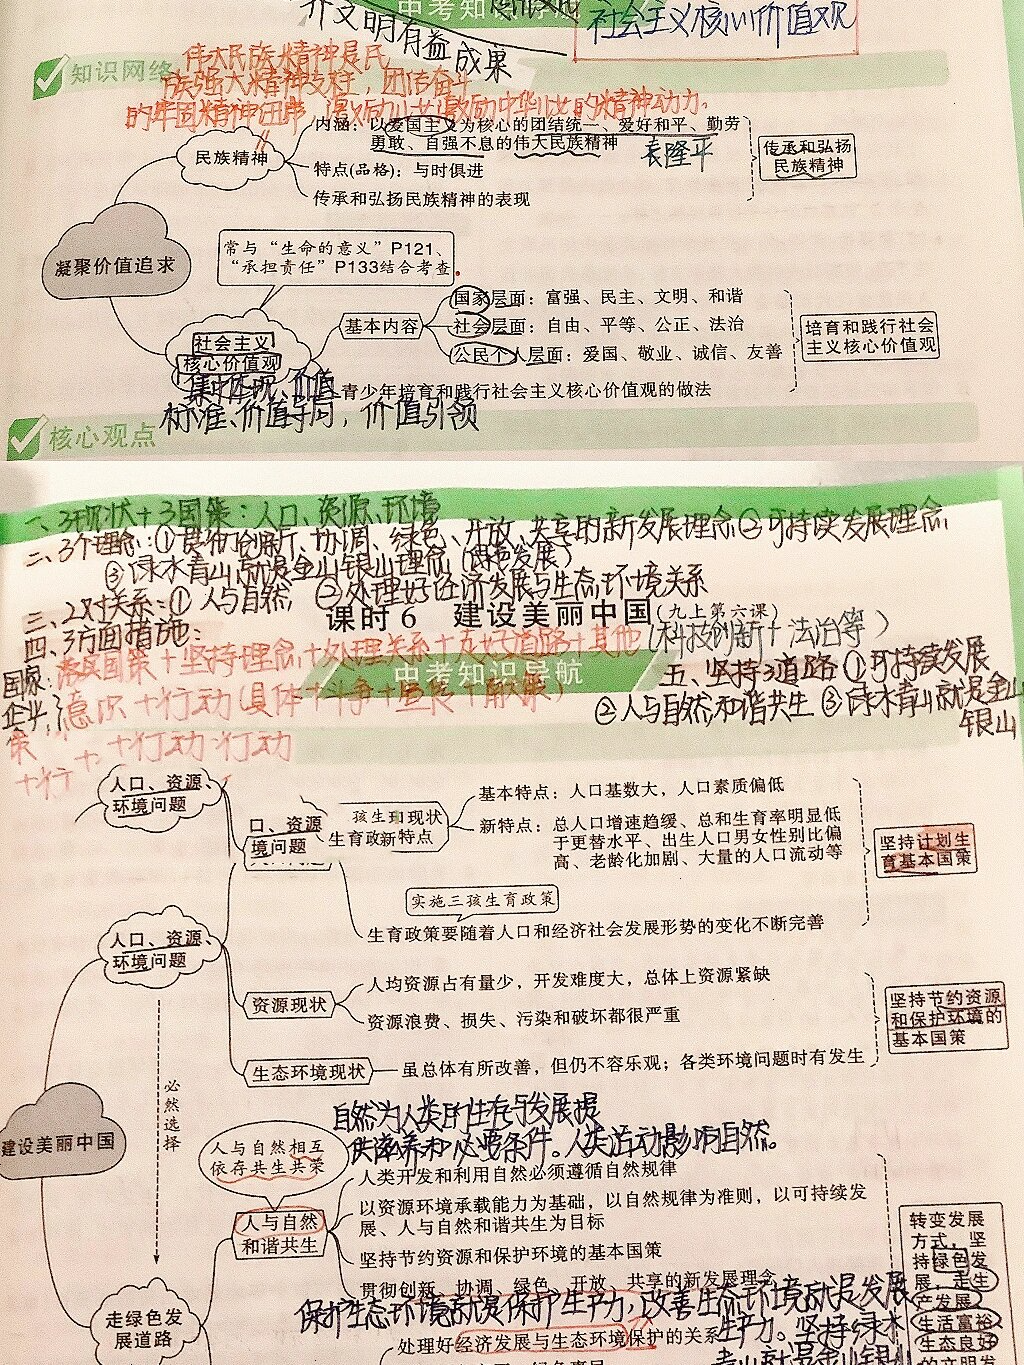 介文明有益成果
中考知识导航
社会主义核心价值观
知识网络
伟大民族精神是民
族强大精神支柱，团结奋斗
的牢固精神纽带，激励中华儿女的精神动力。
民族精神
内涵：以爱国主义为核心的团结统一、爱好和平、勤劳
勇敢、自强不息的伟大民族精神
袁隆平
特点(品格)：与时俱进
传承和弘扬民族精神的表现
传承和弘扬
民族精神
凝聚价值追求
常与“生命的意义”P121、
“承担责任”P133结合考查
社会主义
核心价值观
基本内容
国家层面：富强、民主、文明、和谐
社会层面：自由、平等、公正、法治
公民个人层面：爱国、敬业、诚信、友善
培育和践行社会
主义核心价值观
青少年培育和践行社会主义核心价值观的做法
集中体现、价值
标准、价值导向，价值引领
核心观点
一、3现状+3国策：人口、资源、环境
二、3个理念：①贯彻创新、协调、绿色、开放、共享的新发展理念②可持续发展理念
③绿水青山就是金山银山理念(绿色发展)
三、2对关系：①人与自然 ②处理好经济发展与生态环境关系
课时6 建设美丽中国(九上第六课)
四、3方面措施：
国家：
国策+坚持理念+处理关系+走好道路+其他(科技创新+法治等)
中考知识导航
五、坚持3道路①可持续发展
②人与自然和谐共生③绿水青山就是金山
银山
企业
意识+行动(具体+斗争+宣传+献策)
策
+行动 行动
+行
人口、资源、
环境问题
口、资源
境问题
孩生
现状
生育政
新特点
基本特点：人口基数大，人口素质偏低
新特点：总人口增速趋缓、总和生育率明显低
于更替水平、出生人口男女性别比偏
高、老龄化加剧、大量的人口流动等
坚持计划生
育基本国策
实施三孩生育政策
生育政策要随着人口和经济社会发展形势的变化不断完善
人口、资源、
环境问题
资源现状
人均资源占有量少，开发难度大，总体上资源紧缺
资源浪费、损失、污染和破坏都很严重
坚持节约资源
和保护环境的
基本国策
生态环境现状
虽总体有所改善，但仍不容乐观；各类环境问题时有发生
必然选择
建设美丽中国
自然为人类的生存与发展提
供滋养和必要条件。人类活动影响自然。
人与自然相互
依存共生共荣
人与自然
和谐共生
人类开发和利用自然必须遵循自然规律
以资源环境承载能力为基础，以自然规律为准则，以可持续发
展、人与自然和谐共生为目标
坚持节约资源和保护环境的基本国策
贯彻创新、协调、绿色、开放、共享的新发展理念
保护生态环境就是保护生产力，改善生态环境就是发展
生产力。坚持绿水
青山就是金山银山
走绿色发
展道路
处理好经济发展与生态环境保护的关系
转变发展
方式，坚
持绿色发
展，走生
产发展、
生活富裕、
生态良好
的文明发